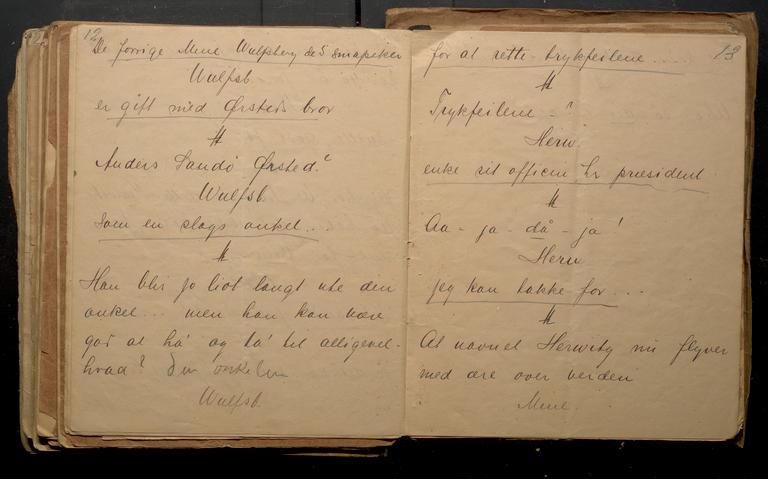 12
De forrige Mme Wulfsberg de 5 småpiker
Wulfsb.
er gift med Ørsteds bror
#
Anders Sandö Ørsted?
Wulfsb.
Som en slags onkel..
#
Han blir jo litt langt ute den
onkel... men han kan være
god at há og ta' til alligevel -
hvad? Den onkelen
Wulfsb.
13
for at rette trykfeilene...
#
Trykfeilene - ?
Herw.
enke sit officin hr præsident
#
Aa - ja - då - ja!
Herw
jeg kan takke for...
#
At navnet Herwitz nu flyver
med ære over verden
Mme.